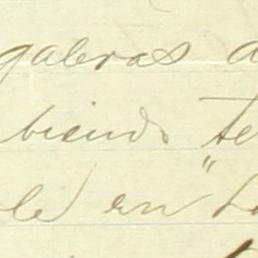 galeras a
biendo te
ole en "L